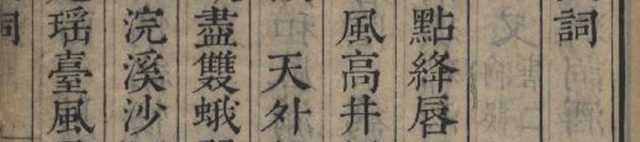 詞
點絳唇
風高井
天外
盡雙蛾
浣溪沙
瑶臺風
詞